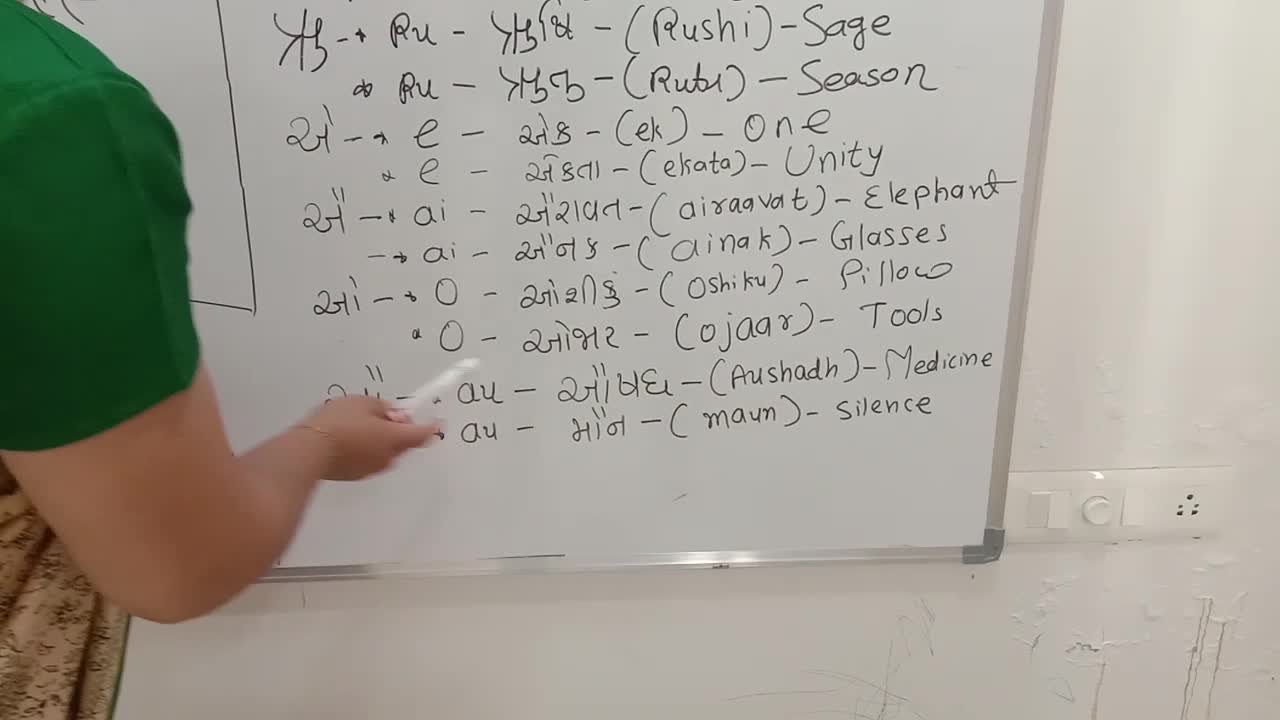 ઋ → Ru - ઋષિ - (Rushi) - Sage
→ Ru - ઋતુ - (Rutu) - Season
એ → e - એક - (ek) - One
→ e - એકતા - (ekata) - Unity
ઐ → ai - ઐરાવત - (airaavat) - Elephant
→ ai - ઐનક - (ainak) - Glasses
ઓ → O - ઓશીકું - (Oshiku) - Pillow
→ O - ઓજાર - (ojaar) - Tools
ઔ → au - ઔષધ - (Aushadh) - Medicine
→ au - મૌન - (maun) - silence